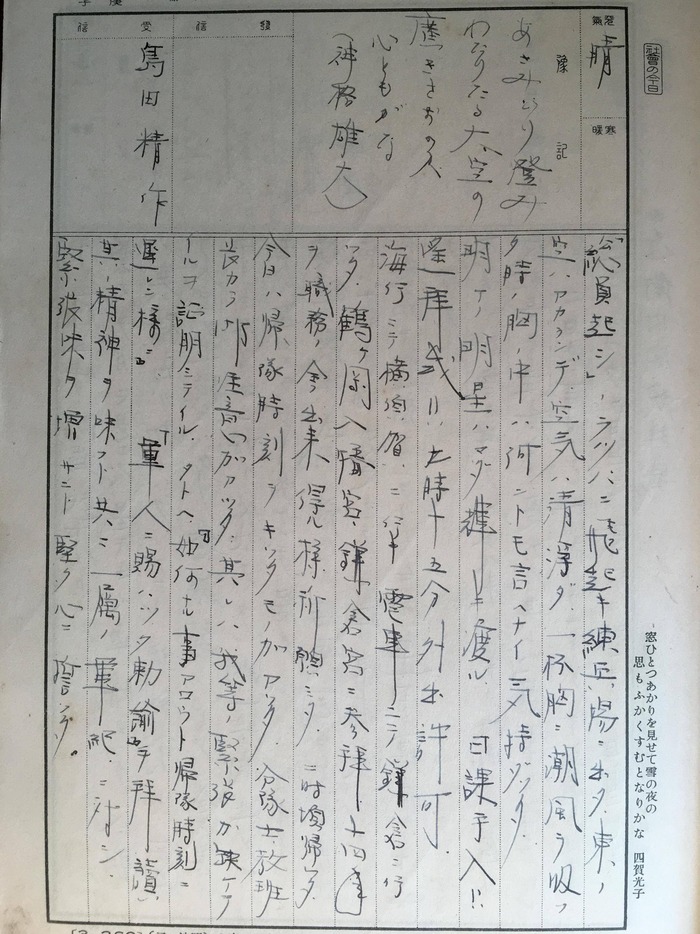 社會の今日
窓ひとつあかりを見せて雪の夜の
思もふかくすむとなりかな 四賀光子
天氣
晴
寒暖
豫記
あさみどり登み
わたりたる大空の
廣きをおのが
心ともがな
(神格雄大)
發信
受信
島田精作
「總員起シ」ラッパニ飛起キ練兵場ニ出タ。東ノ
空ハアカランデ、空気ハ清浄ダ。一杯胸ニ潮風ヲ吸ッ
タ時ノ胸ノ中ハ何ントモ言ヘナイ気持ダッタ
明ケノ明星ハマダ輝 キ度ル 日課手入!!
遥拝式!! 七時十五分外出許可
海行ニテ横須賀ニ行キ電車ニテ鎌倉ニ行
ッタ、鶴ヶ岡八幡宮、鎌倉宮ニ参拝。
ヲ職務ノ全出来得ル様祈願シタ 二時頃帰ッタ
今日ハ帰隊時刻ヲキッタモノガアッタ 分隊士、教班
長カラ 注意ガアッタ 其レハ我等ノ緊張ガ缺ケテ
イルヲ証明シテイル。タトヘ如何ナル事アロウト帰隊時刻ニ
遅レン様ニ 「軍人ニ賜ハッタ勅諭」ヲ拝讀
其ノ精神ヲ味フト共ニ一層ノ軍紀ニ対シ
緊張味ヲ増サント堅ク心ニ誓ッタ。